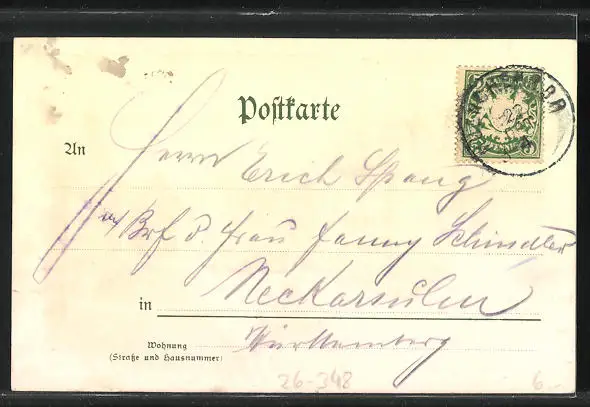 Postkarte
An Herrn Erich Spang
Brf d. Frau Fanny Schindler
in Neckarsulm
Wohnung
(Straße und Hausnummer)
Württemberg
26-348
6.-